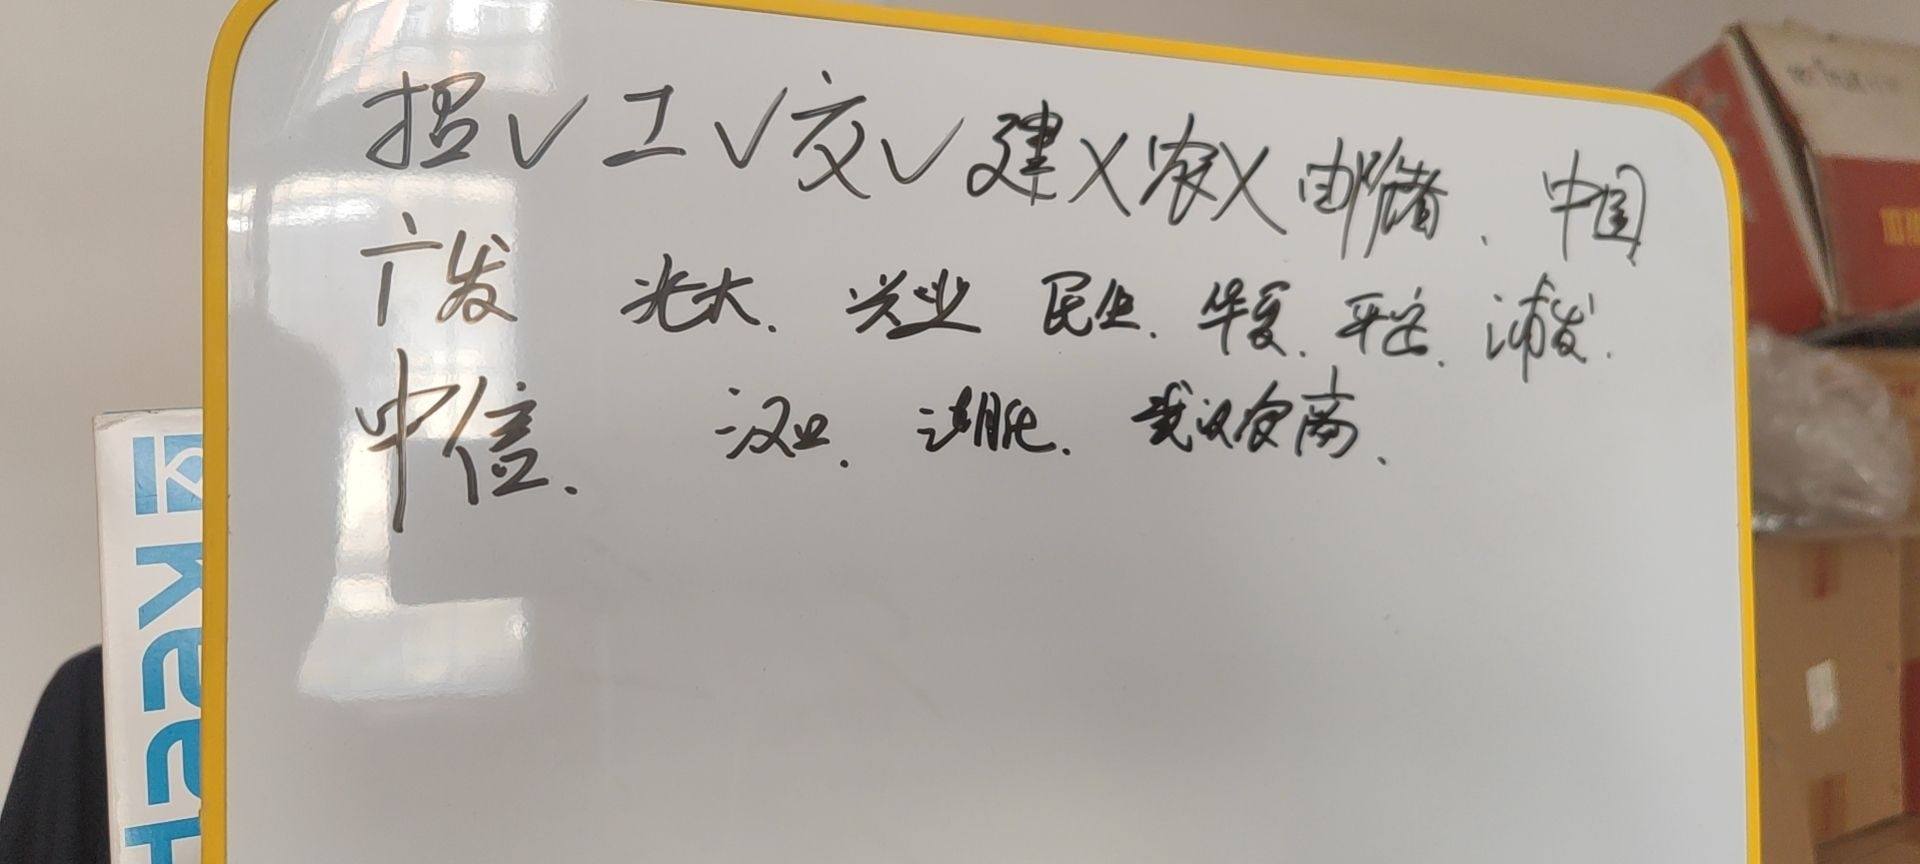 招✓工✓交✓建X农X邮储、中国
广发 光大、兴业 民生、华夏、平安、浦发、
中信、 汉口、湖北、武汉农商、